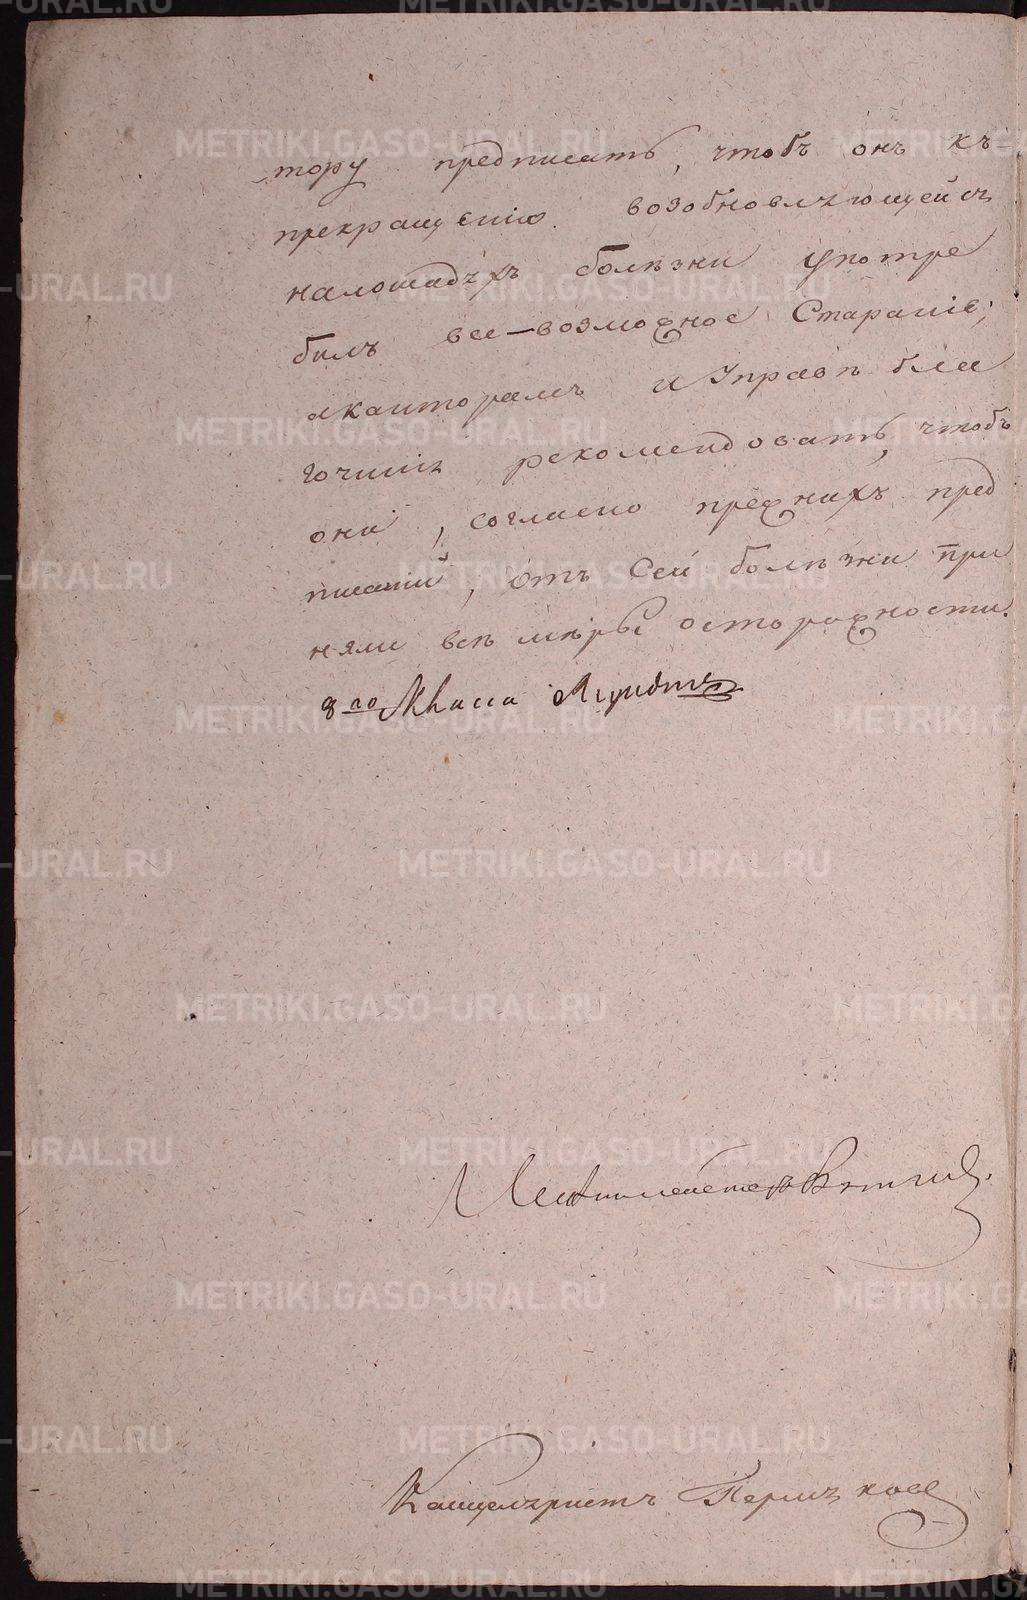 тору предписать, чтобъ онъ къ
прекращенію возобновляющейся
на лошадяхъ болѣзни употре
билъ все-возможное Стараніе;
а канторамъ и Управѣ бла
гочинія рекомендовать, чтобъ
они, согласно прежнихъ пред
писаній, отъ Сей болѣзни при
няли всѣ мѣры осторожности.
8го Класса
Канцеляристъ
METRIKI.GASO-URAL.RU